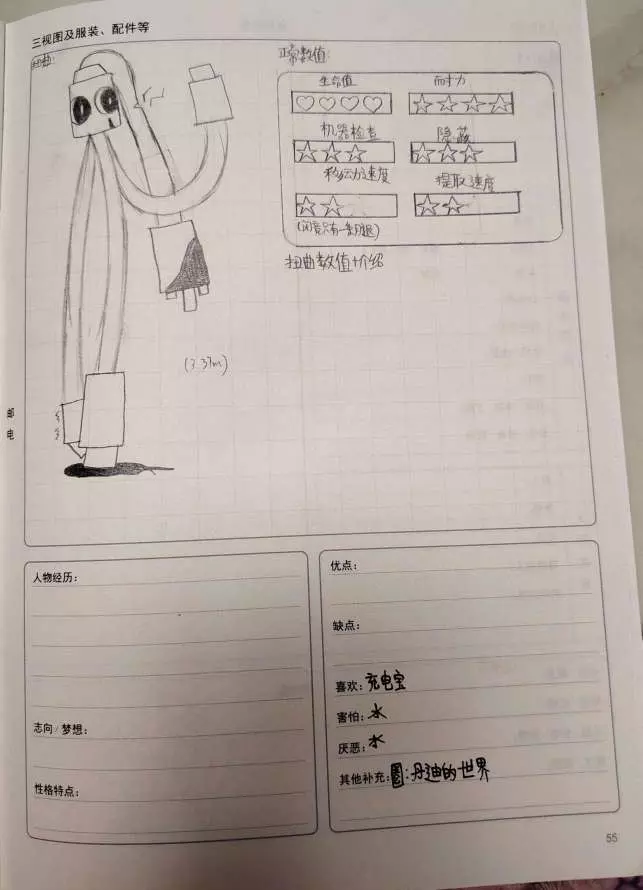 三视图及服装、配件等
正常数值:
生命值 耐力
机器检查 隐蔽
移动速度 提取速度
(闪竟只有一条月腿)
扭曲数值+介绍
(3.37m)
邮
电
人物经历:
志向/梦想:
性格特点:
优点:
缺点:
喜欢:充电宝
害怕:水
厌恶:水
其他补充:圈:丹迪的世界
55